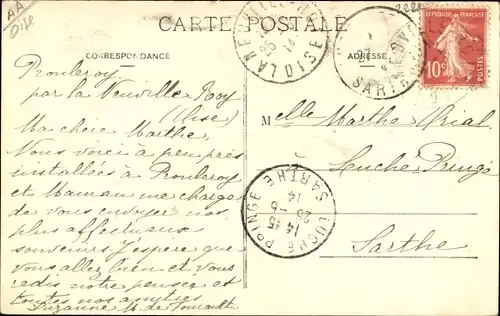 AA
Oise
CARTE POSTALE
CORRESPONDANCE
ADRESSE
RÉPUBLIQUE FRANÇAISE
10c
POSTES
OISE
14
SARTHE
Rouleroy
par la Neuville Roy
(Oise)
Ma chère Marthe.
Nous voici à peu près
installées à Rouleroy
et Maman me charge
de vous envoyer nos
plus affectueux
souvenirs. J'espère que
vous allez bien et vous
redis notre pensée et
toutes nos amitiés
Suzanne M. de
Melle Marthe Rial
Luché Pringé
Sarthe
LUCHÉ PRINGÉ
SARTHE
14 15
14